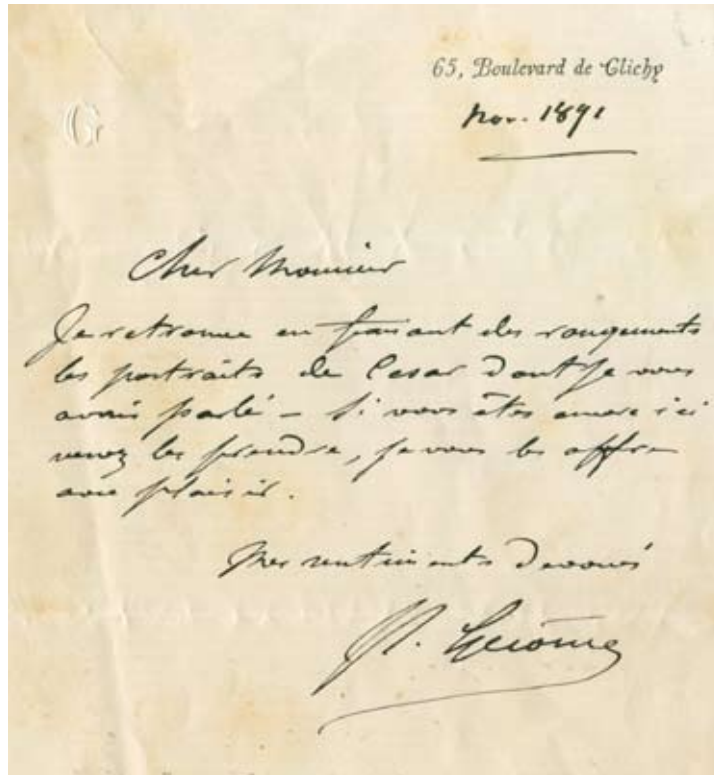 65, Boulevard de Clichy
G
nov. 1891
Cher Monsieur
Je retrouve en faisant des rangements
les portraits de Cesar dont je vous
avais parlé – Si vous êtes encore ici
venez les prendre, je vous les offre
avec plaisir.
Mes sentiments dévoués
JL. Gerôme